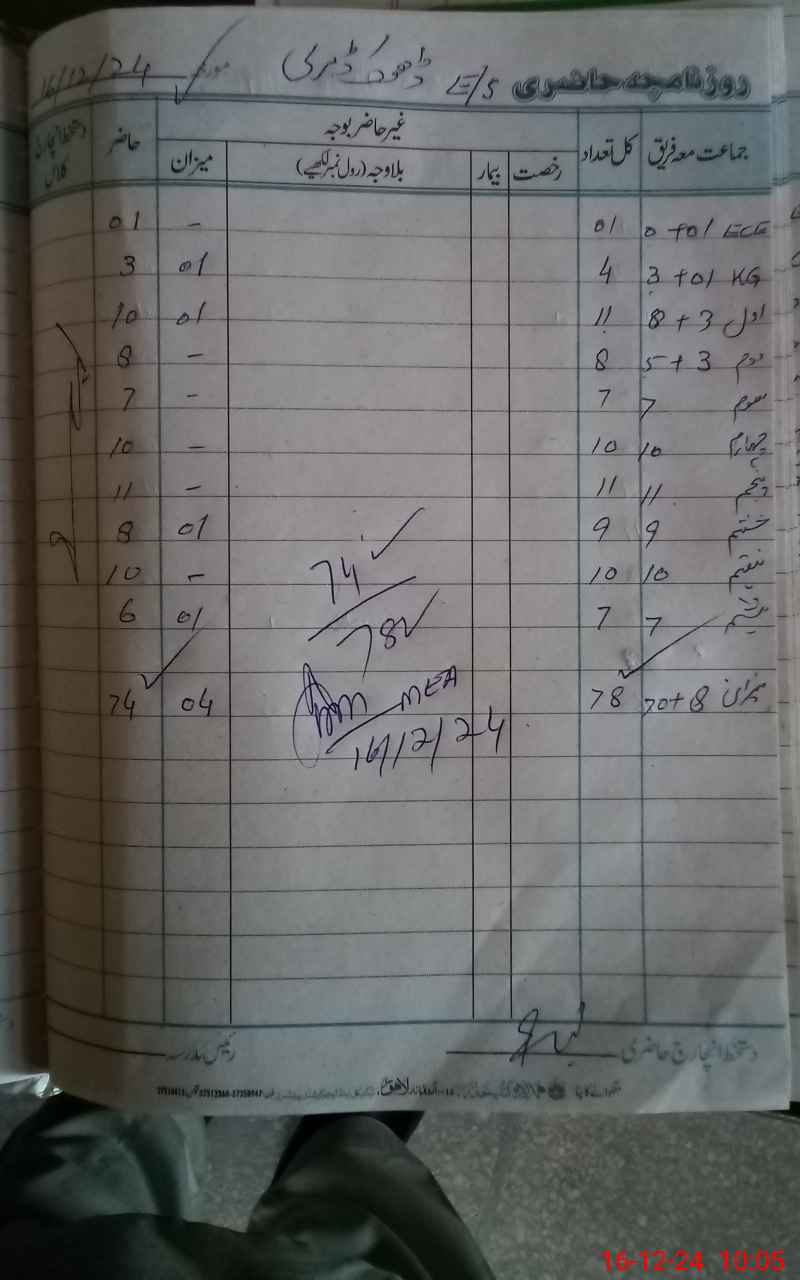 روزنامچہ حاضری E/S ڈھوک ڈبری مورخہ 16/12/24
جماعت معہ فریق کل تعداد غیر حاضر بوجہ حاضر دستخط انچارج کلاس
رخصت بیمار بلاوجہ (رول نمبر لکھیے) میزان
ECE 0+01 01 - 01
KG 3+01 4 01 3
اول 8+3 11 01 10
دوم 5+3 8 - 8
سوم 7 7 - 7
چہارم 10 10 - 10
پنجم 11 11 - 11
ششتم 9 9 01 8
ہفتم 10 10 - 10
ہشتم 7 7 01 6
میزان 70+8 78 04 74
74
78
MEA
16/12/24
دستخط انچارج حاضری
رئیس مدرسہ
16-12-24 10:05